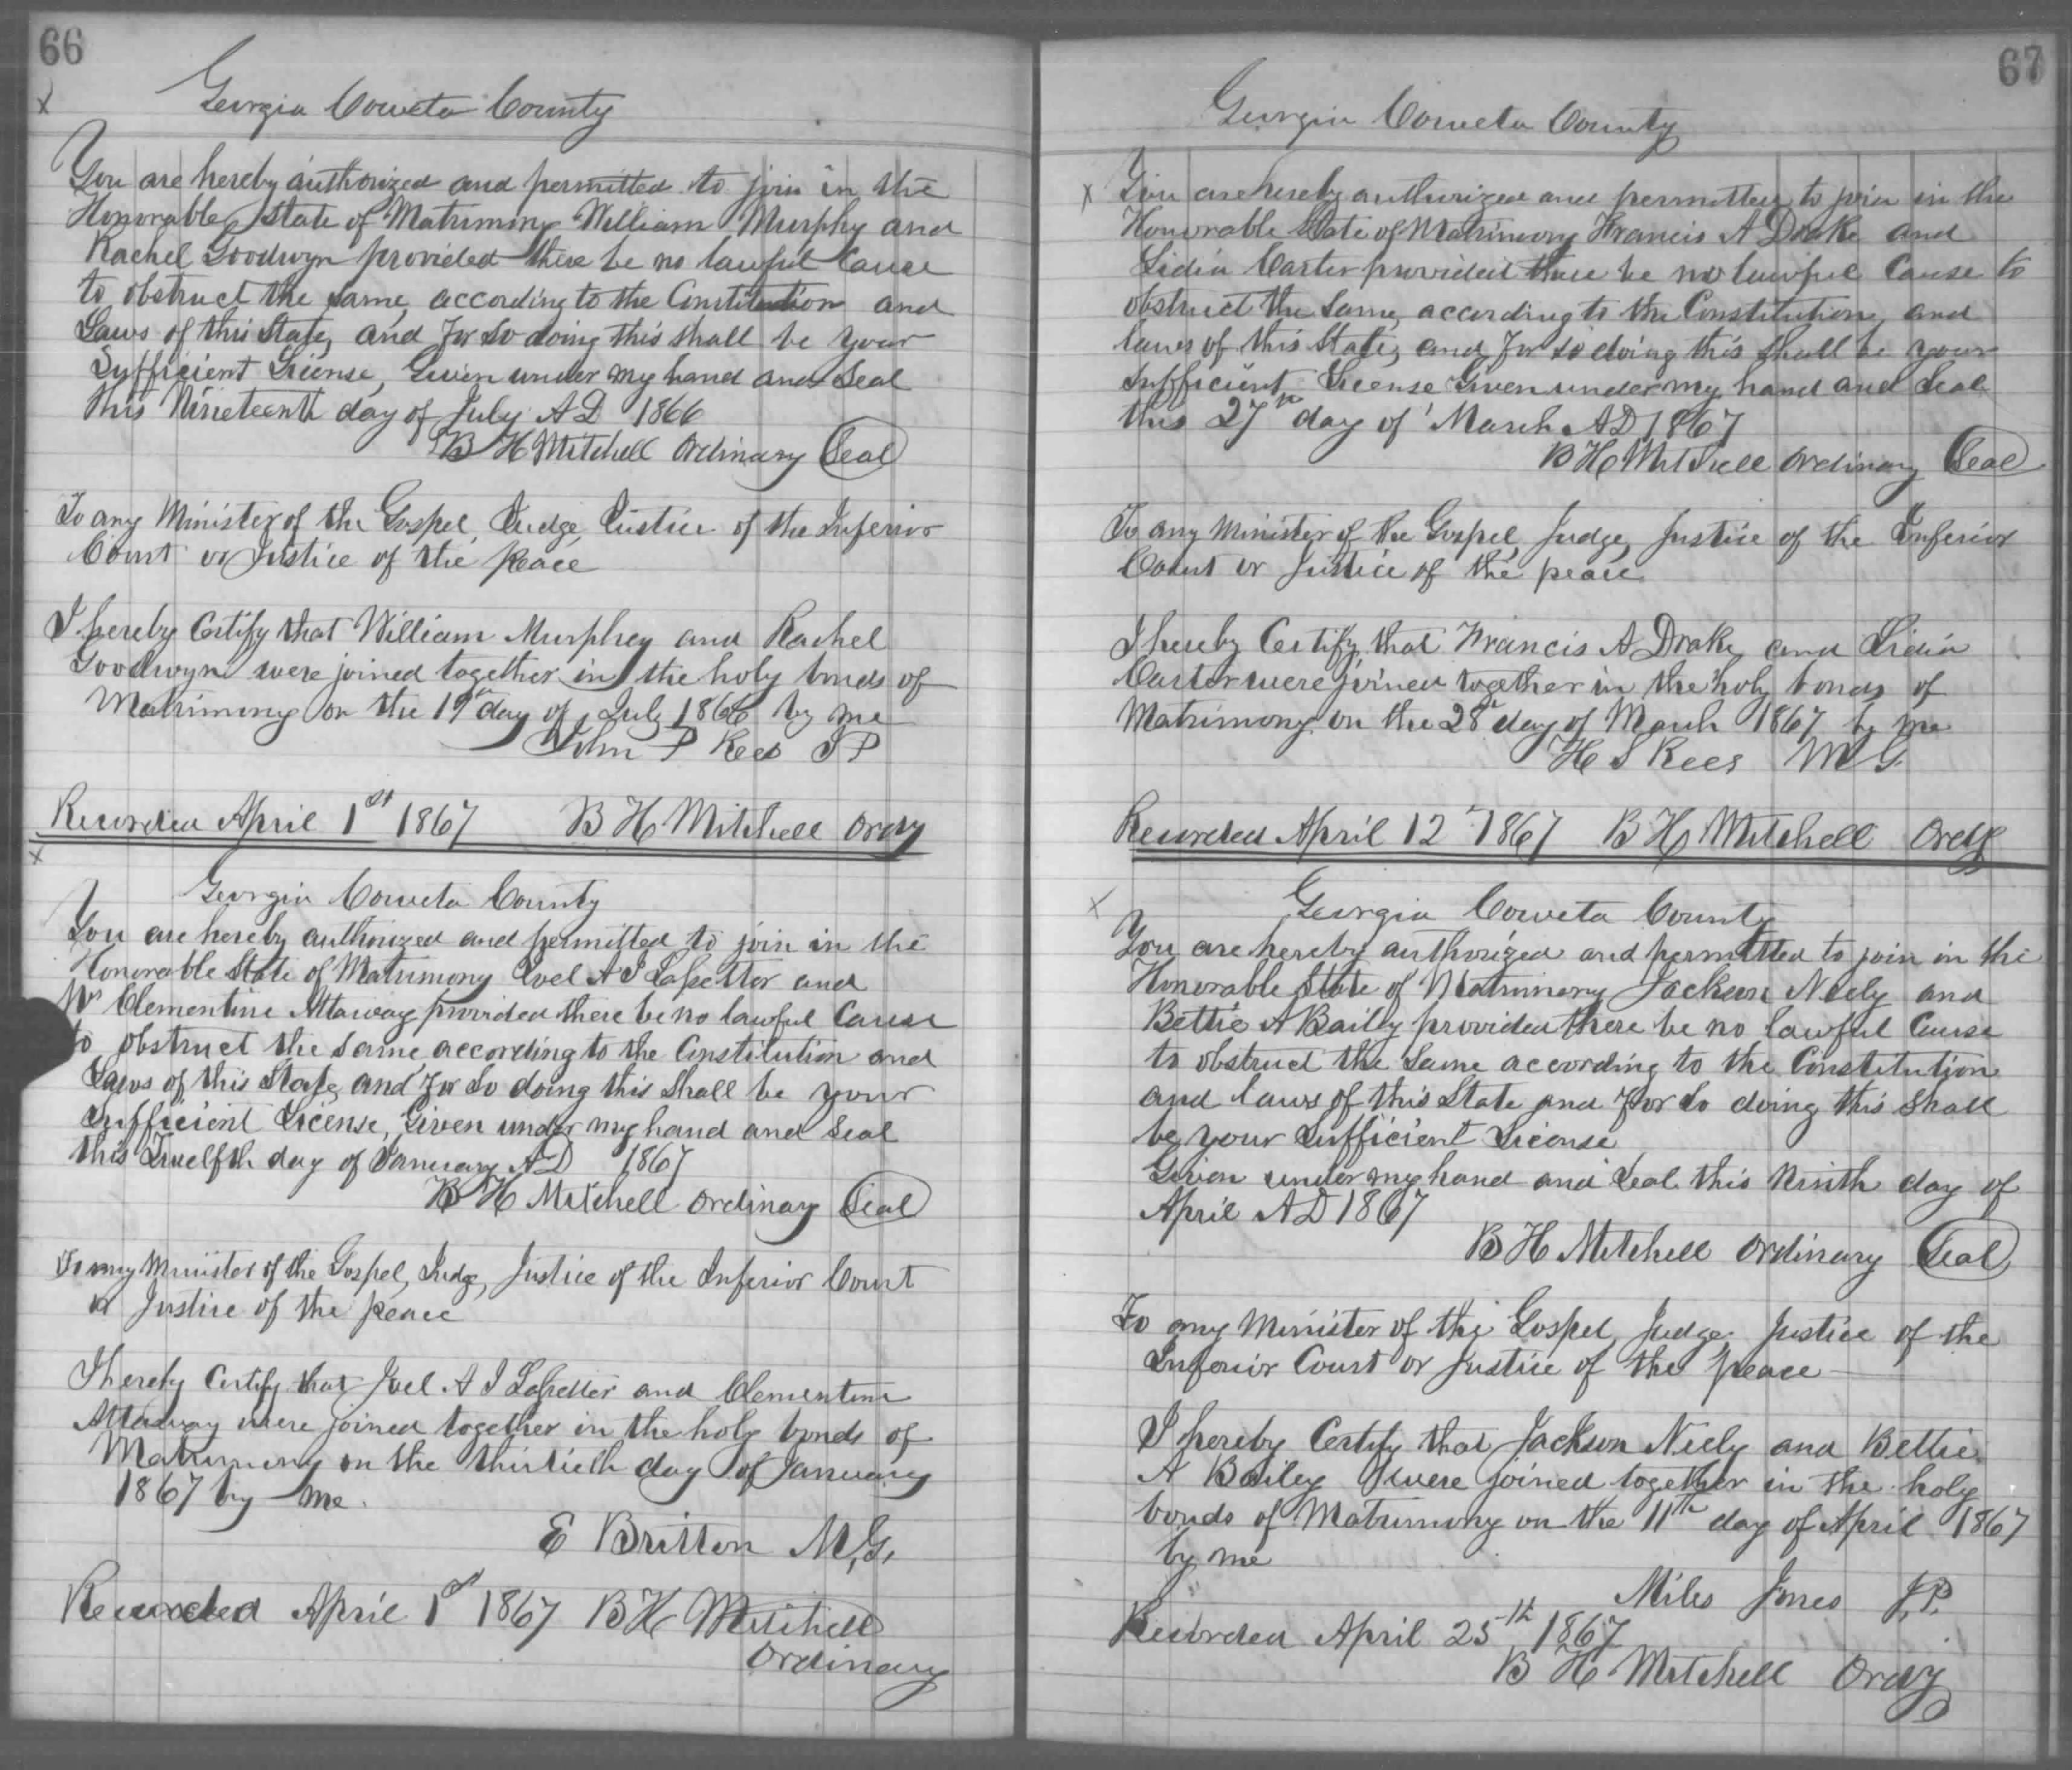 66
Georgia Coweta County
You are hereby authorized and permitted to join in the
Honorable State of Matrimony William Murphy and
Rachel Goodwyn provided there be no lawful Cause
to obstruct the same, according to the Constitution and
Laws of this State, and for so doing this shall be your
Sufficient License, Given under my hand and Seal
this Nineteenth day of July AD 1866
B H Mitchell Ordinary Seal
To any Minister of the Gospel, Judge, Justice of the Inferior
Court or Justice of the Peace
I hereby Certify that William Murphrey and Rachel
Goodwyn were joined together in the holy bonds of
Matrimony on the 19th day of July 1866 by me
John P Rees JP
Recorded April 1st 1867 B H Mitchell Ordy
Georgia Coweta County
You are hereby authorized and permitted to join in the
Honorable State of Matrimony Joel A J and
Clementine Attaway provided there be no lawful Cause
to obstruct the same according to the Constitution and
Laws of this State, and for so doing this shall be your
Sufficient License, Given under my hand and Seal
this Twelfth day of January AD 1867
B H Mitchell Ordinary Seal
To any Minister of the Gospel, Judge, Justice of the Inferior Court
or Justice of the peace
I hereby Certify that Joel A J and Clementine
Attaway were joined together in the holy bonds of
Matrimony on the thirtieth day of January
1867 by me.
E Britton M,G,
Recorded April 1st 1867 B H Mitchell
Ordinary
67
Georgia Coweta County
You are hereby authorized and permitted to join in the
Honorable State of Matrimony Francis A Drake and
Lidia Carter provided there be no lawful Cause to
obstruct the same, according to the Constitution, and
laws of this State, and for so doing this shall be your
sufficient License Given under my hand and Seal
this 27th day of March AD 1867
B H Mitchell Ordinary Seal
To any Minister of the Gospel, Judge, Justice of the Inferior
Court or Justice of the peace
I hereby Certify that Francis A Drake, and Lidia
Carter were joined together in the holy bonds of
Matrimony on the 28 day of March 1867 by me
H S Rees M G
Recorded April 12 1867 B H Mitchell Ordy
Georgia Coweta County
You are hereby authorized and permitted to join in the
Honorable State of Matrimony Jackson Neely and
Bettie A Bailly provided there be no lawful Cause
to obstruct the same according to the Constitution
and laws of this State and for so doing this shall
be your Sufficient License
Given under my hand and Seal this Ninth day of
April AD 1867
B H Mitchell Ordinary Seal
To any Minister of the Gospel, Judge Justice of the
Inferior Court or Justice of the peace
I hereby Certify that Jackson Neely and Bettie
A Bailey were joined together in the holy
bonds of Matrimony on the 11th day of April 1867
by me
Miles Jones J.P.
Recorded April 25th 1867
B H Mitchell Ordy